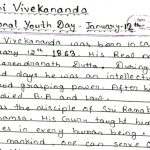 ni Vivekananda
ional Youth Day - January-12th
Vivekananda was born in ca
uary 12th 1863. His Real n
arendranath Dutta. During
days he was an intellectu
and grasping power. After h
died B.A. and Law.
was the disciple of Sri Ramak
hamsa. His Guru taught h
es in every human being.
mankind. one can serve G